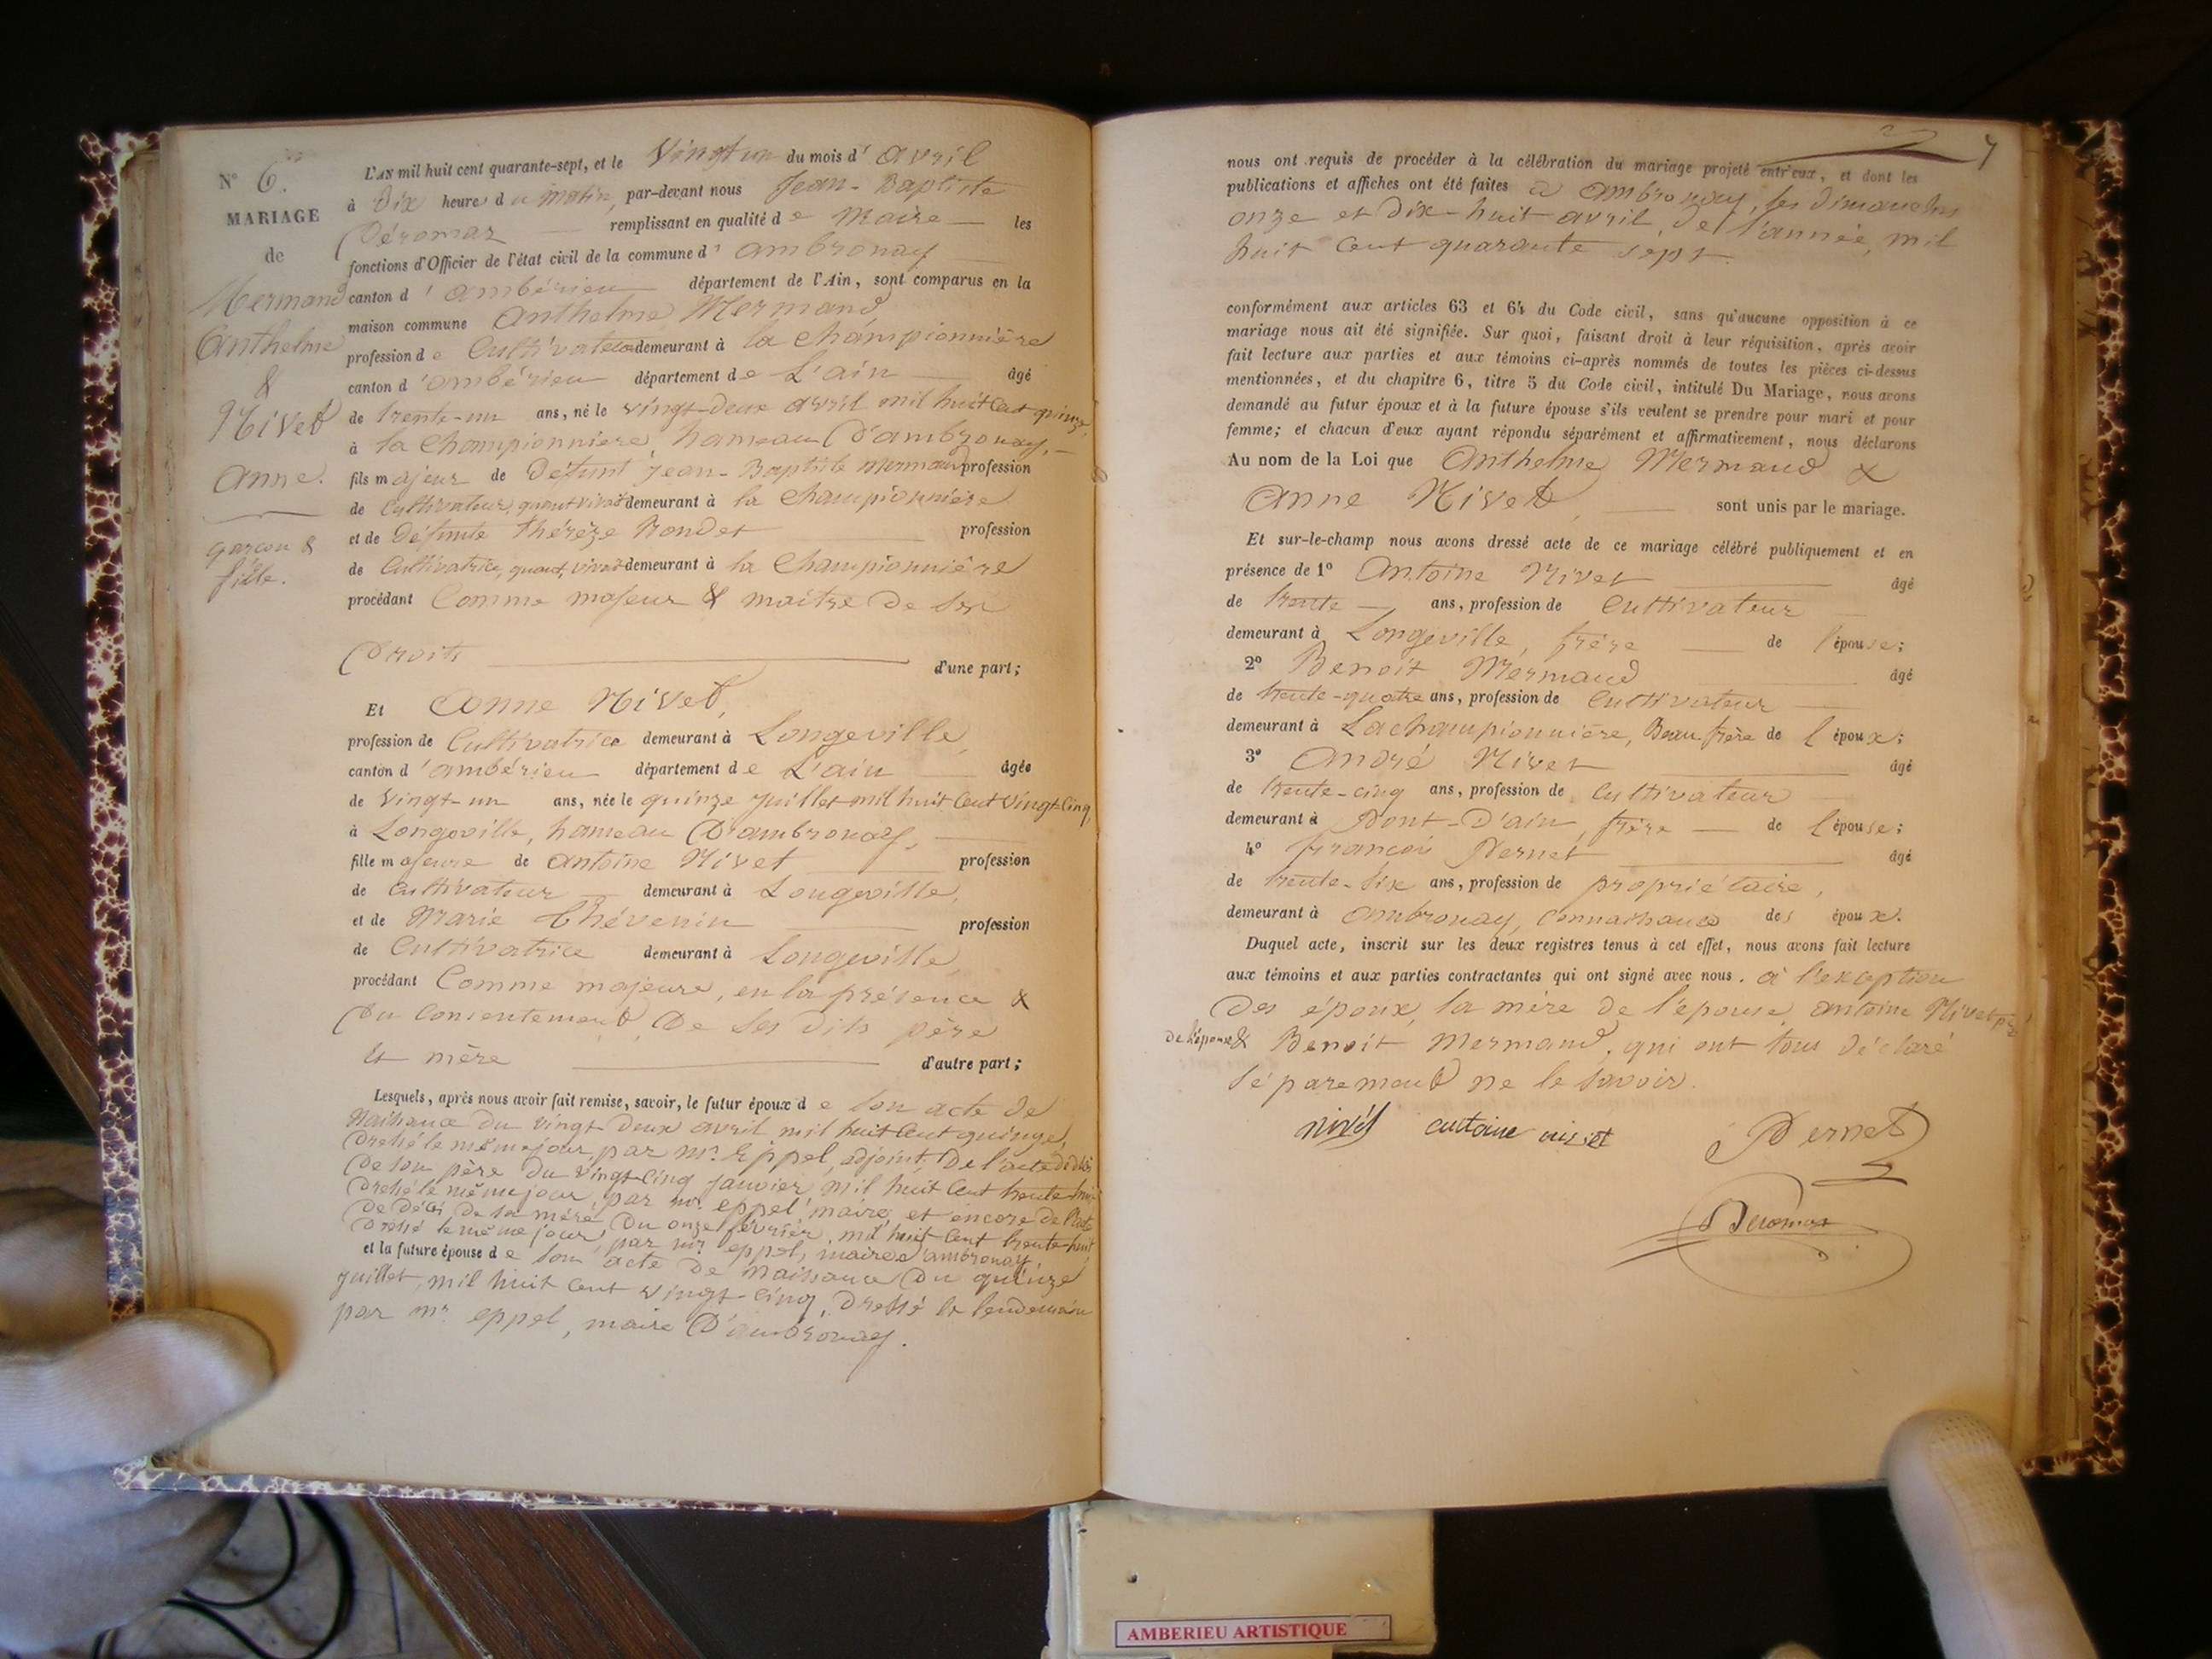 N° 6.
MARIAGE
de
Mermand
Anthelme
&
Nivet
Anne.
garçon &
fille.
L'AN mil huit cent quarante-sept, et le Vingt un du mois d' avril
à Dix heures du matin, par-devant nous Jean-Baptiste
Déromas remplissant en qualité de Maire les
fonctions d'Officier de l'état civil de la commune d' ambronay
canton d' ambérieu département de l'Ain, sont comparus en la
maison commune Anthelme Mermand
profession de Cultivateur demeurant à la championnière
canton d' ambérieu département de L'ain âgé
de trente-un ans, né le vingt-deux avril mil huit cent quinze,
à la Championniere, hameau D'ambronay,
fils majeur de Défunt Jean-Baptiste Mermand profession
de Cultivateur, quant vivait demeurant à la Championnière
et de Défunte Thérèze Rondet profession
de Cultivatrice, quant, vivait demeurant à la Championnière
procédant Comme majeur & maitre De ses
Droits d'une part;
Et Anne Nivet,
profession de Cultivatrice demeurant à Longeville,
canton d' ambérieu département de L'ain âgée
de Vingt-un ans, née le quinze juillet mil huit Cent Vingt Cinq,
à Longeville, hameau D'ambronay,
fille majeure de Antoine Nivet profession
de Cultivateur demeurant à Longeville,
et de Marie Thévenin profession
de Cultivatrice demeurant à Longeville
procédant Comme majeure, en la présence &
Du Consentement De ses dits père
& mère d'autre part;
Lesquels, après nous avoir fait remise, savoir, le futur époux de son acte de
Naissance du vingt Deux avril mil huit Cent quinze,
Dressé le même jour, par mr. Eppel, adjoint; De l'acte de décès
De son père Du Vingt-Cinq janvier mil huit Cent trente huit
Dressé le même jour, par mr. eppel, maire, et encore de l'acte
De Décès De sa mère, Du onze février, mil huit Cent trente-huit,
Dressé le même jour, par mr. eppel, maire d'ambronay,
et la future épouse de son acte De Naissance Du quinze
juillet, mil huit Cent vingt-Cinq, Dressé le lendemain
par mr. eppel, maire D'ambronay.
7
nous ont requis de procéder à la célébration du mariage projeté entr'eux, et dont les
publications et affiches ont été faites à ambronay, les dimanches
onze et Dix-huit avril, de l'année, mil
huit Cent quarante sept.
conformément aux articles 63 et 64 du Code civil, sans qu'aucune opposition à ce
mariage nous ait été signifiée. Sur quoi, faisant droit à leur réquisition, après avoir
fait lecture aux parties et aux témoins ci-après nommés de toutes les pièces ci-dessus
mentionnées, et du chapitre 6, titre 5 du Code civil, intitulé Du Mariage, nous avons
demandé au futur époux et à la future épouse s'ils veulent se prendre pour mari et pour
femme; et chacun d'eux ayant répondu séparément et affirmativement, nous déclarons
Au nom de la Loi que Anthelme Mermand &
Anne Nivet, sont unis par le mariage.
Et sur-le-champ nous avons dressé acte de ce mariage célébré publiquement et en
présence de 1° Antoine Nivet âgé
de trente ans, profession de Cultivateur
demeurant à Longeville, frère de l'épouse;
2° Benoit Mermand âgé
de trente-quatre ans, profession de Cultivateur
demeurant à Lachampionnière, Beau frère de l'époux;
3° André Nivet âgé
de trente-cinq ans, profession de Cultivateur
demeurant à Pont-D'ain, frère de l'épouse;
4° françois Pernet âgé
de trente-six ans, profession de propriétaire,
demeurant à ambronay, Connaissance des époux.
Duquel acte, inscrit sur les deux registres tenus à cet effet, nous avons fait lecture
aux témoins et aux parties contractantes qui ont signé avec nous. à l'exception
Des époux, la mère De l'épouse, antoine Nivet frè
de l'épouse & Benoit Mermand, qui ont tous Déclaré
séparement ne le savoir.
nivét antoine nivet Pernet
Deromas
AMBERIEU ARTISTIQUE